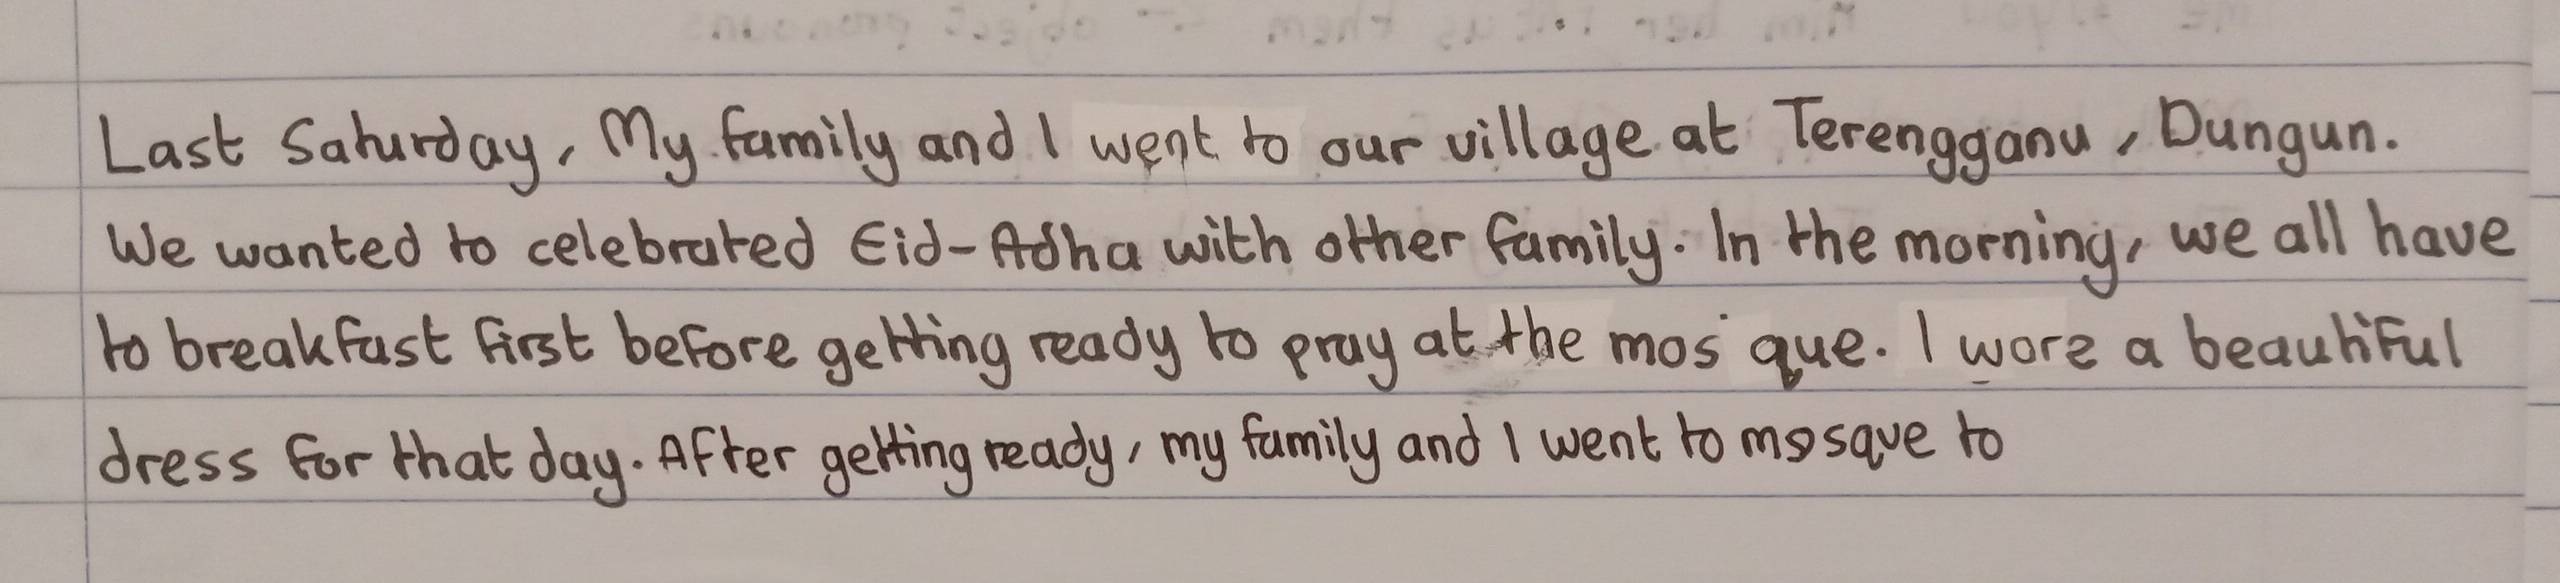 Last Saturday, My family and I went to our village at Terengganu, Dungun.
We wanted to celebrated Eid-Adha with other family. In the morning, we all have
to breakfast first before getting ready to pray at the mosque. I wore a beautiful
dress for that day. After getting ready, my family and I went to mosque to